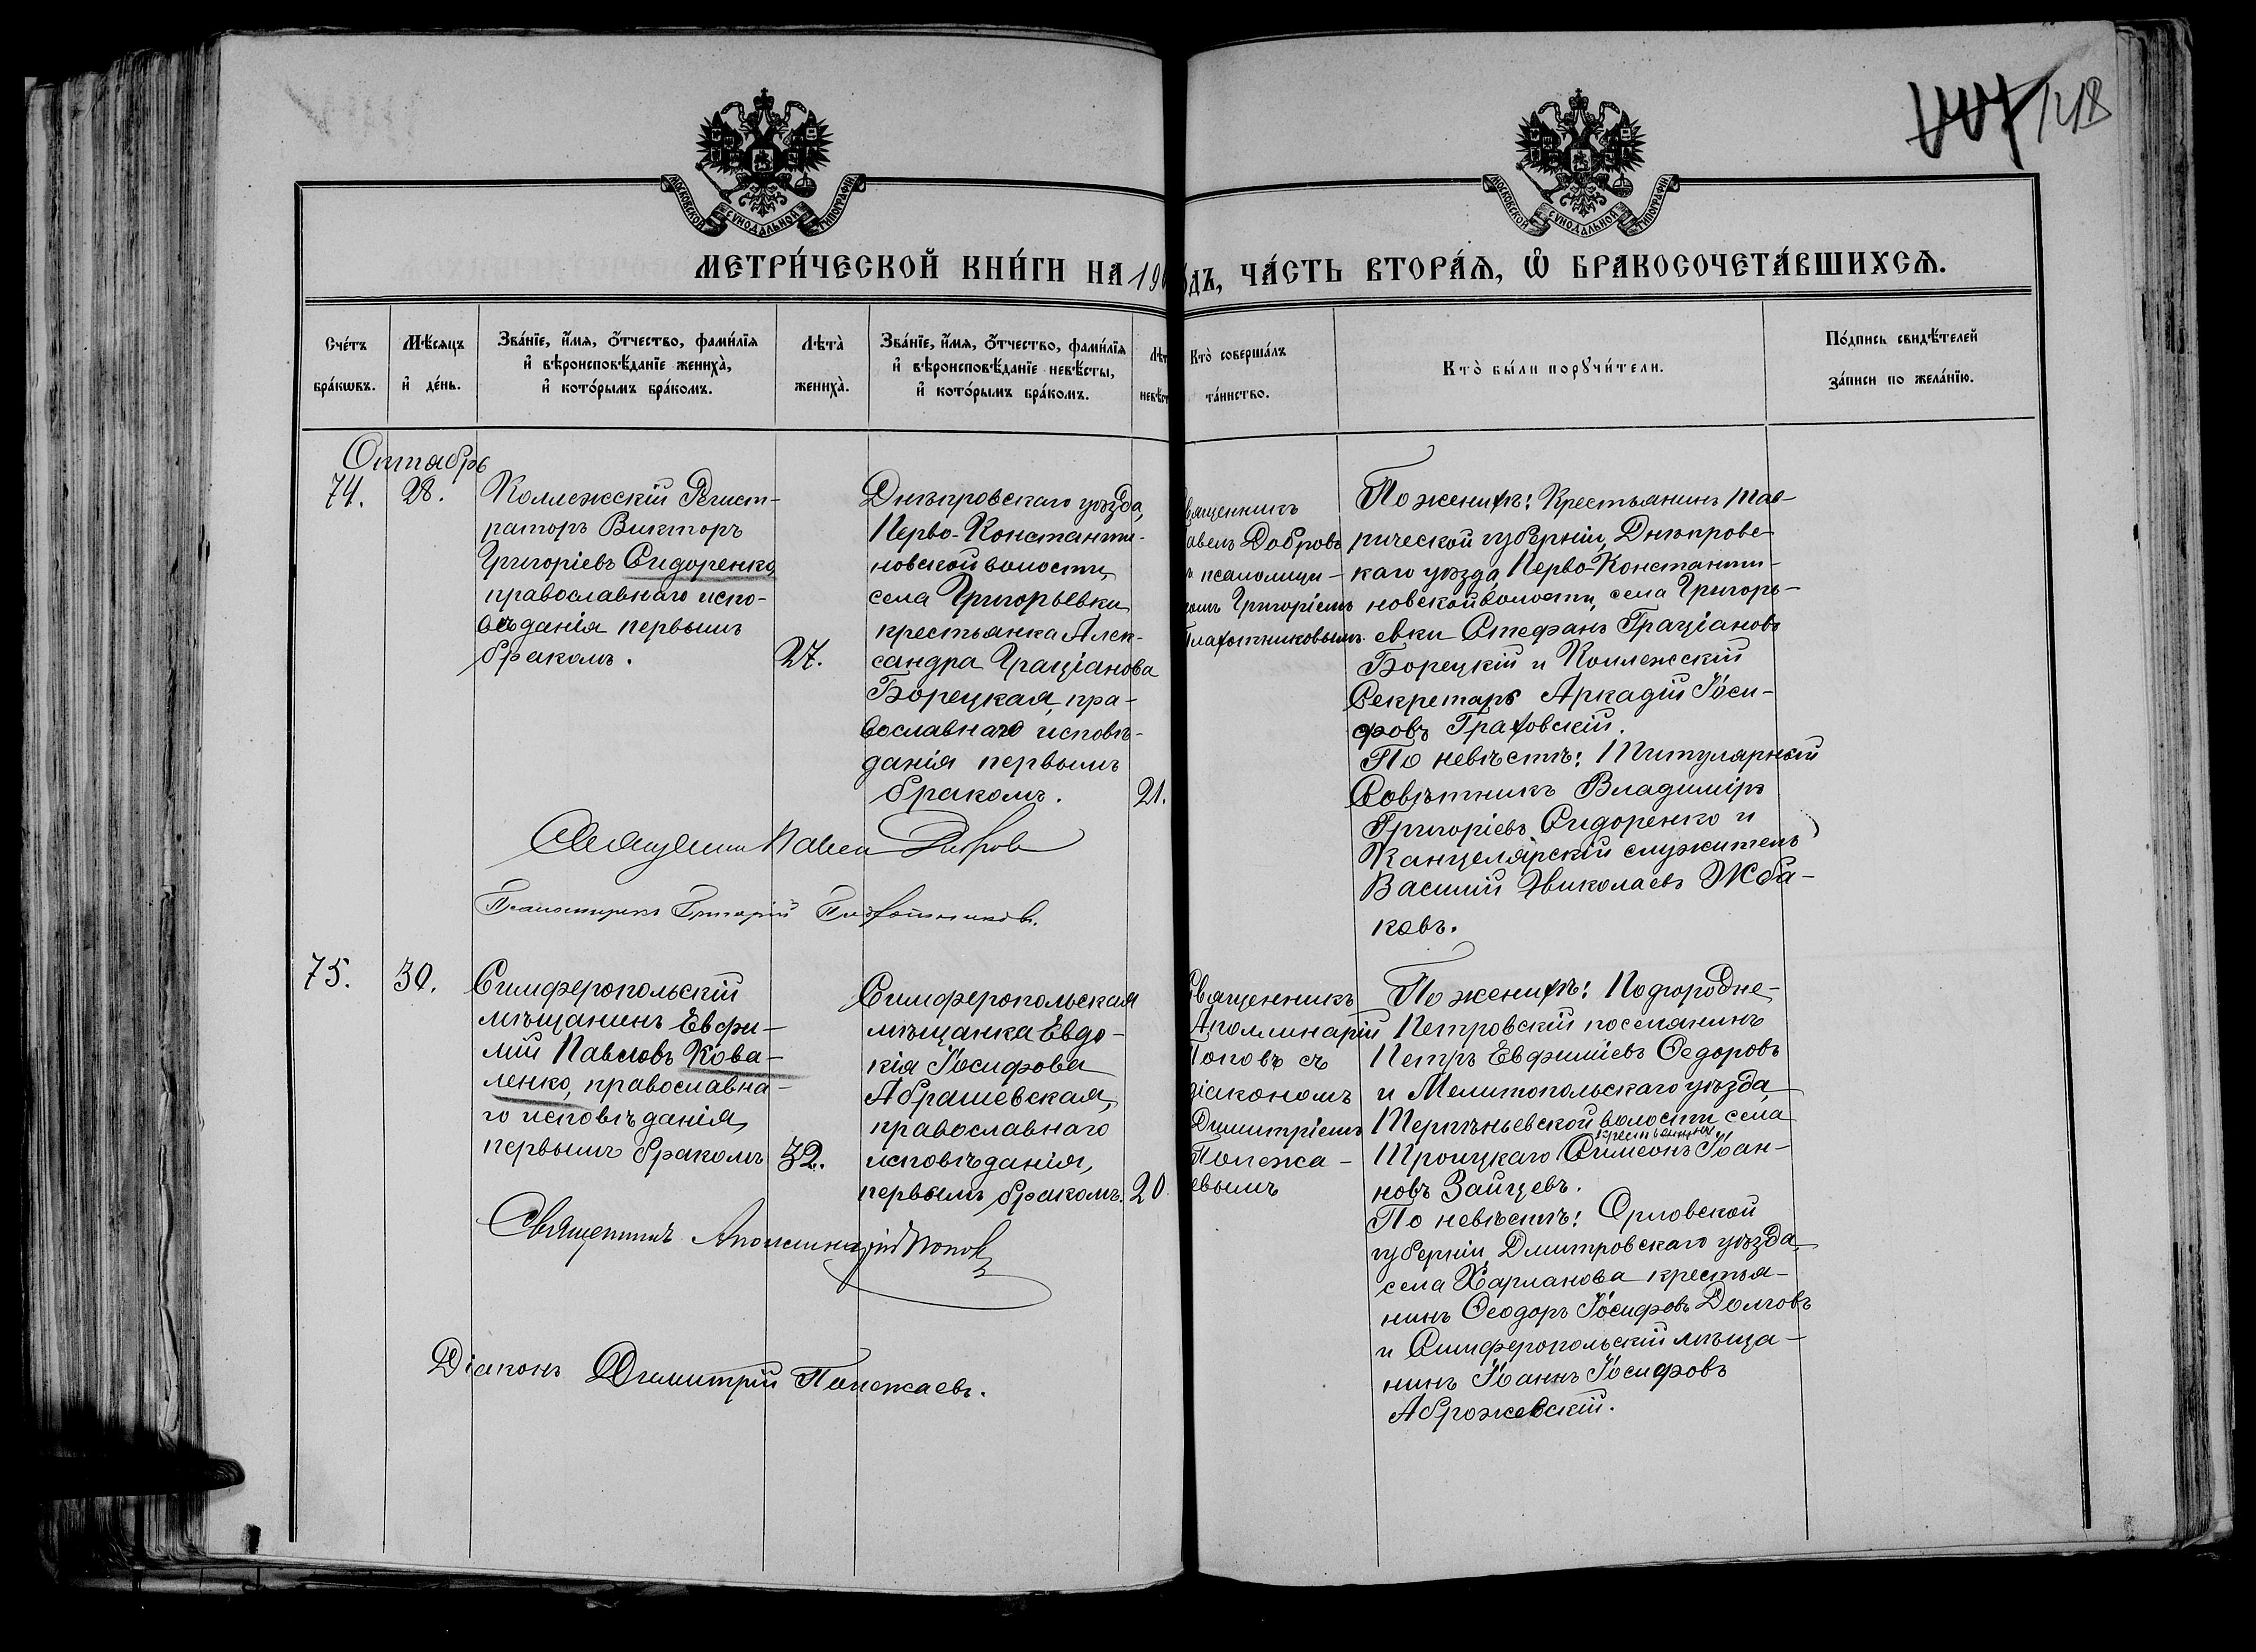 147 148
МОСКОВСКОЙ СѴНОДАЛЬНОЙ ТИПОГРАФІИ
МОСКОВСКОЙ СѴНОДАЛЬНОЙ ТИПОГРАФІИ
МЕТРИ́ЧЕСКОЙ КНИ́ГИ НА 190 ДЪ, ЧА́СТЬ ВТОРА́Ѧ, Ѽ БРАКОСОЧЕТА́ВШИХСѦ.
Сче́тъ
бра́кѡвъ.
Мѣ́сяцъ
и҆ де́нь.
Зва́нїе, и҆́мя, ѻ҆́тчество, фами́лїя
и҆ вѣроисповѣ́данїе жениха̀,
и҆ кото́рымъ бра́комъ.
Лѣта̀
жениха̀.
Зва́нїе, и҆́мя, ѻ҆́тчество, фами́лїя
и҆ вѣроисповѣ́данїе невѣ́сты,
и҆ кото́рымъ бра́комъ.
Лѣт
невѣ́ст
Кто̀ соверша́лъ
та́инство.
Кто̀ бы́ли порꙋчи́тели.
По́дпись свидѣ́телей
за́писи по жела́нїю.
Октябрь
74.
28.
Коллежскій Регист-
раторъ Викторъ
Григоріевъ Сидоренко,
православнаго испо-
вѣданія первымъ
бракомъ.
27.
Днѣпровскаго уѣзда,
Перво-Константи-
новской волости,
села Григорьевки
крестьянка Алек-
сандра Граціанова
Борецкая, пра-
вославнаго исповѣ-
данія первымъ
бракомъ.
21.
вященникъ
авелъ Добровъ
псаломщи-
комъ Григоріемъ
Плахотниковымъ.
По женихѣ: Крестьянинъ Тав-
рической губерніи, Днѣпровс-
каго уѣзда, Перво-Константи-
новской волости, села Григорь-
евки Стефанъ Граціановъ
Борецкій и Коллежскій
Секретарь Аркадій Іоси-
фовъ Граховскій.
По невѣстѣ: Титулярный
Совѣтникъ Владиміръ
Григоріевъ Сидоренко и
Канцелярскій служитель
Василій Николаевъ Жба-
ковъ.
Священникъ Павелъ Добровъ
Псаломщикъ Григорій Плахотниковъ.
75.
30.
Симферопольскій
мѣщанинъ Евфи-
мій Павловъ Кова-
ленко, православна-
го исповѣданія,
первымъ бракомъ
32.
Симферопольская
мѣщанка Евдо-
кія Іосифова
Абрашевская,
православнаго
исповѣданія,
первымъ бракомъ.
20.
Священникъ
Аполлинарій
Поповъ съ
діакономъ
Димитріемъ
Полежа-
евымъ
По женихѣ: Подгородне-
Петровскій поселянинъ
Петръ Евфиміевъ Ѳедоровъ
и Мелитопольскаго уѣзда,
Терпѣньевской волости села
крестьянинъ
Троицкаго Симеонъ Іоан-
новъ Зайцевъ.
По невѣстѣ: Орловской
губерніи, Дмитровскаго уѣзда,
села Харланова крестья-
нинъ Ѳеодоръ Іосифовъ Долговъ
и Симферопольскій мѣща-
нинъ Іоаннъ Іосифовъ
Аброжевскій.
Священникъ Аполлинарій Поповъ
Діаконъ Димитрій Полежаевъ.